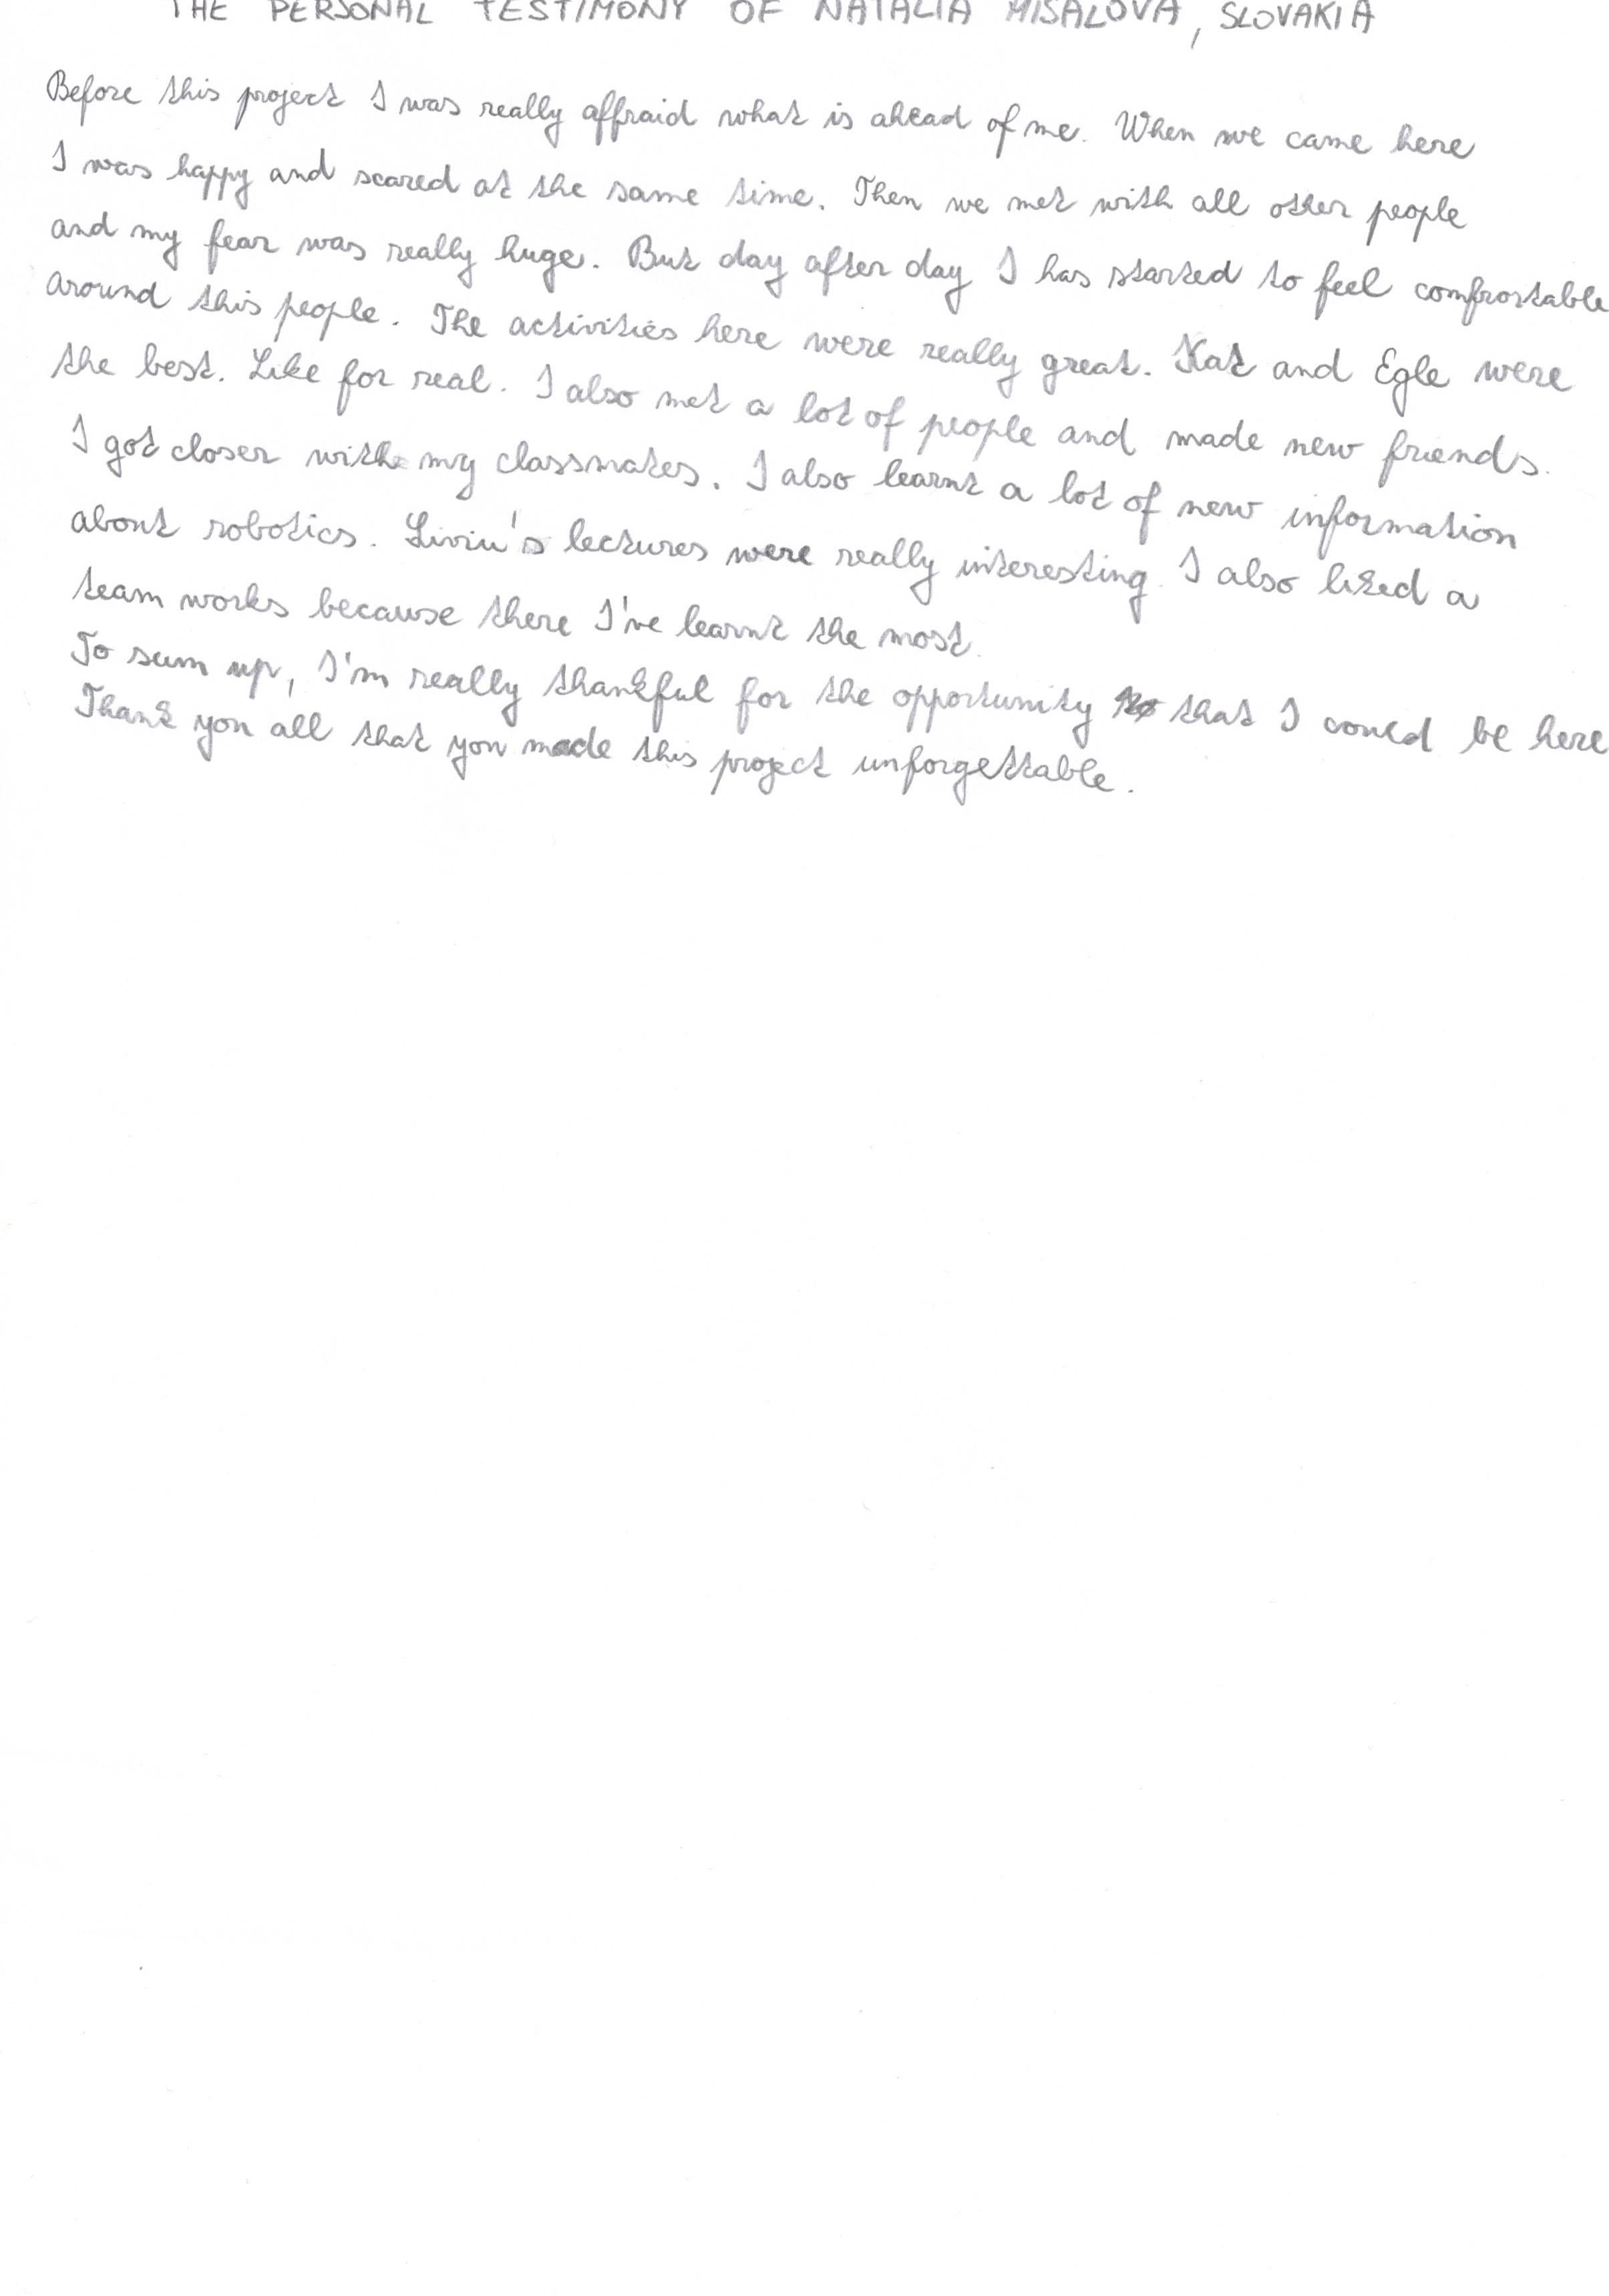 THE PERSONAL TESTIMONY OF NATALIA MISALOVA, SLOVAKIA
Before this project I was really affraid what is ahead of me. When we came here
I was happy and scared at the same time. Then we met with all other people
and my fear was really huge. But day after day I has started to feel comfrortable
around this people. The activities here were really great. Kat and Egle were
the best. Like for real. I also met a lot of people and made new friends.
I got closer with my classmates. I also learnt a lot of new information
about robotics. Liviu's lectures were really interesting. I also liked a
team works because there I've learnt the most.
To sum up, I'm really thankful for the opportunity that I could be here
Thank you all that you made this project unforgettable.